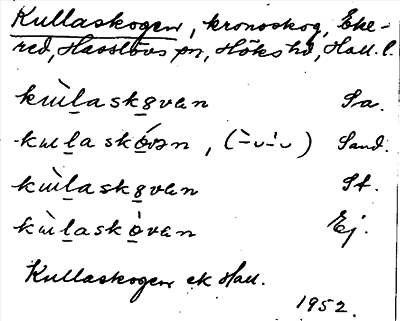 Kullaskogen, kronoskog, Eke-
red, Hasslövs sn, Höks hd, Hall. l.
kɯ̀l̠asko̠van Sa.
kɯl̠askóvən, (–̀ ᴗ –́ ᴗ) Sand.
kɯ̀l̠asko̠van St.
kɯ̀l̠askò̠van Ej.
Kullaskogen ek Hall.
1952.